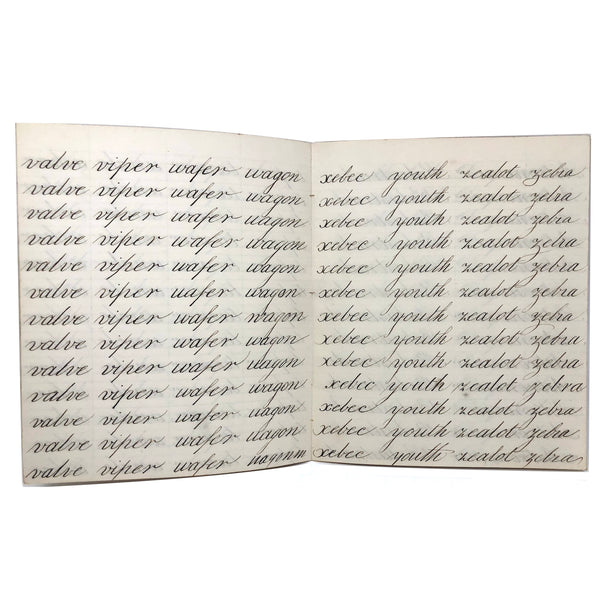 valve viper wafer wagon
valve viper wafer wagon
valve viper wafer wagon
valve viper wafer wagon
valve viper wafer wagon
valve viper uafer wagon
valve viper wafer wagon
valve viper wafer wagon
valve viper wafer wagon
valve viper wafer wagon
valve viper wafer wagon
valve viper wafer wagon
valve viper wafer
xebec youth zealot zebra
xebec youth zealot zebra
xebec youth zealot zebra
xebec youth zealot zebra
xebec youth zealot zebra
xebec youth zealot zebra
xebec youth zealot zebra
xebec youth zealot zebra
xebec youth zealot zebra
xebec youth zealot zebra
xebec youth zealot zebra
xebec youth zealot zebra
xebec youth zealot zebra